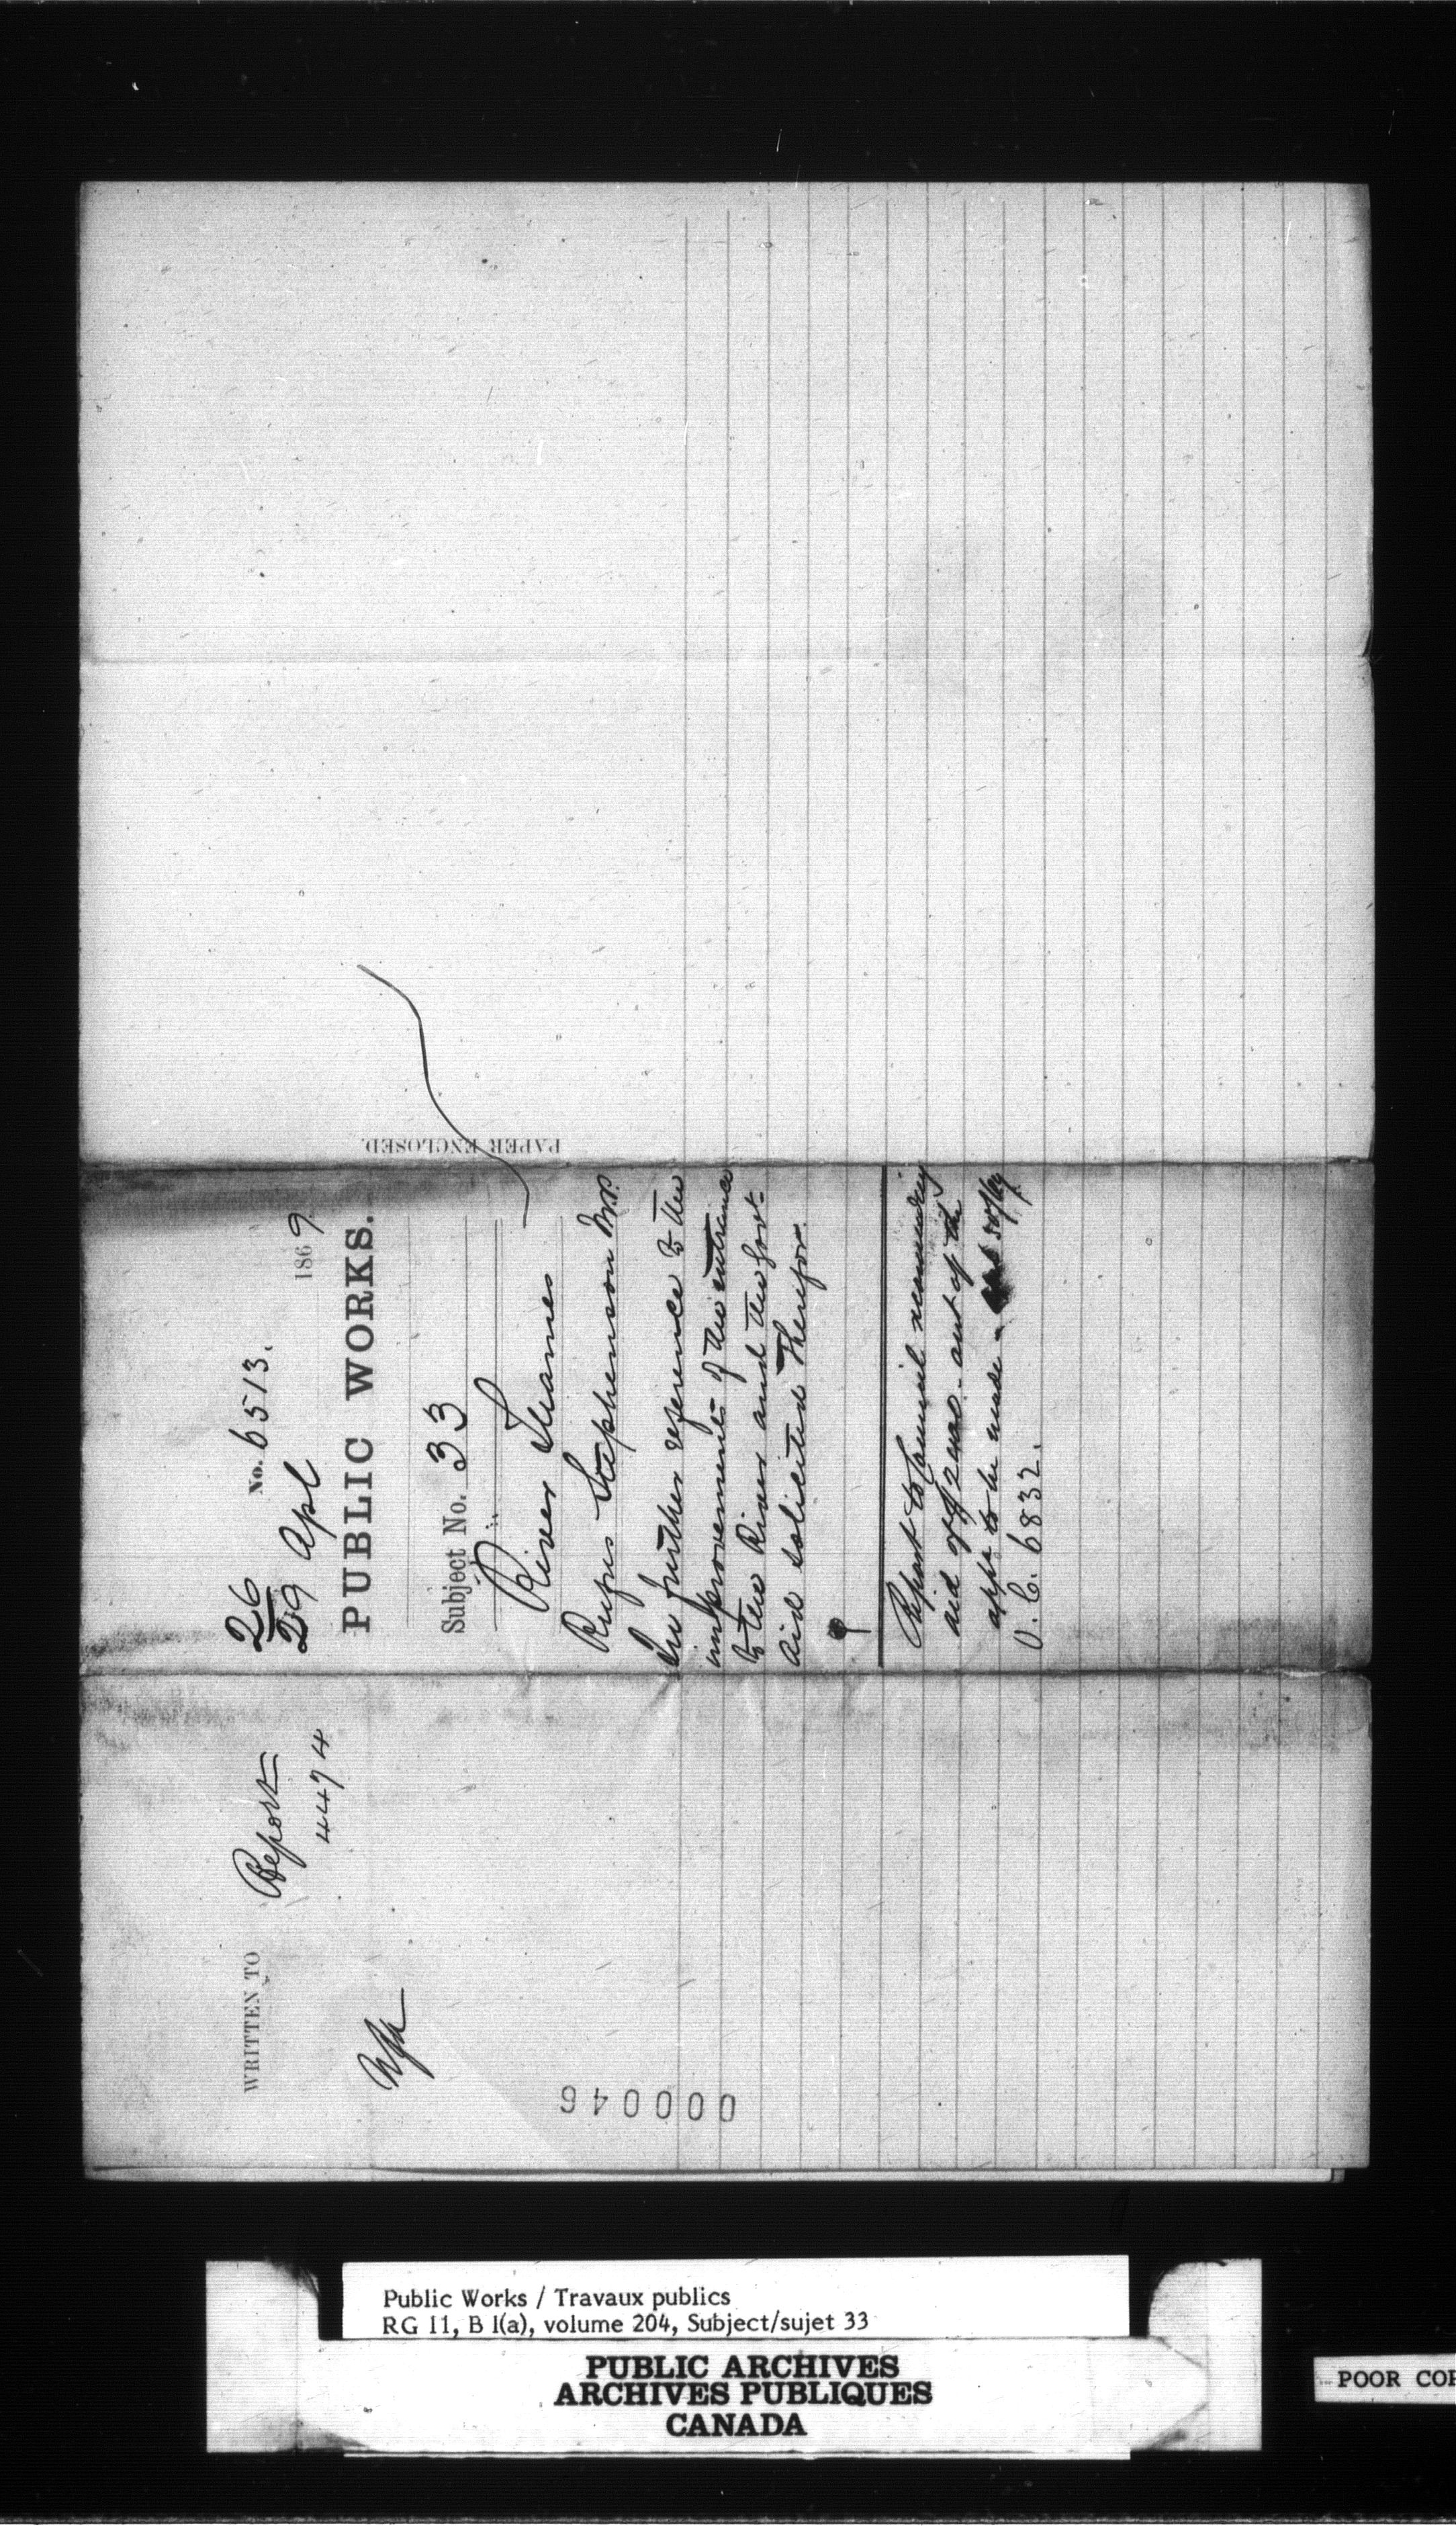 WRITTEN TO
Report
4474
000046
26
29 Apl 1869
No. 6513.
PUBLIC WORKS.
Subject No. 33
River Thames
Rufus Stephenson M.P.
In further reference to the
improvement of the entrance
to the River and the Govt
aid solicited Therefor.
Report to Council recommending
aid of $2000. out of the
appn to be made
O. C. 6832.
PAPER ENCLOSED.
Public Works / Travaux publics
RG 11, B 1(a), volume 204, Subject/sujet 33
PUBLIC ARCHIVES
ARCHIVES PUBLIQUES
CANADA
POOR COP